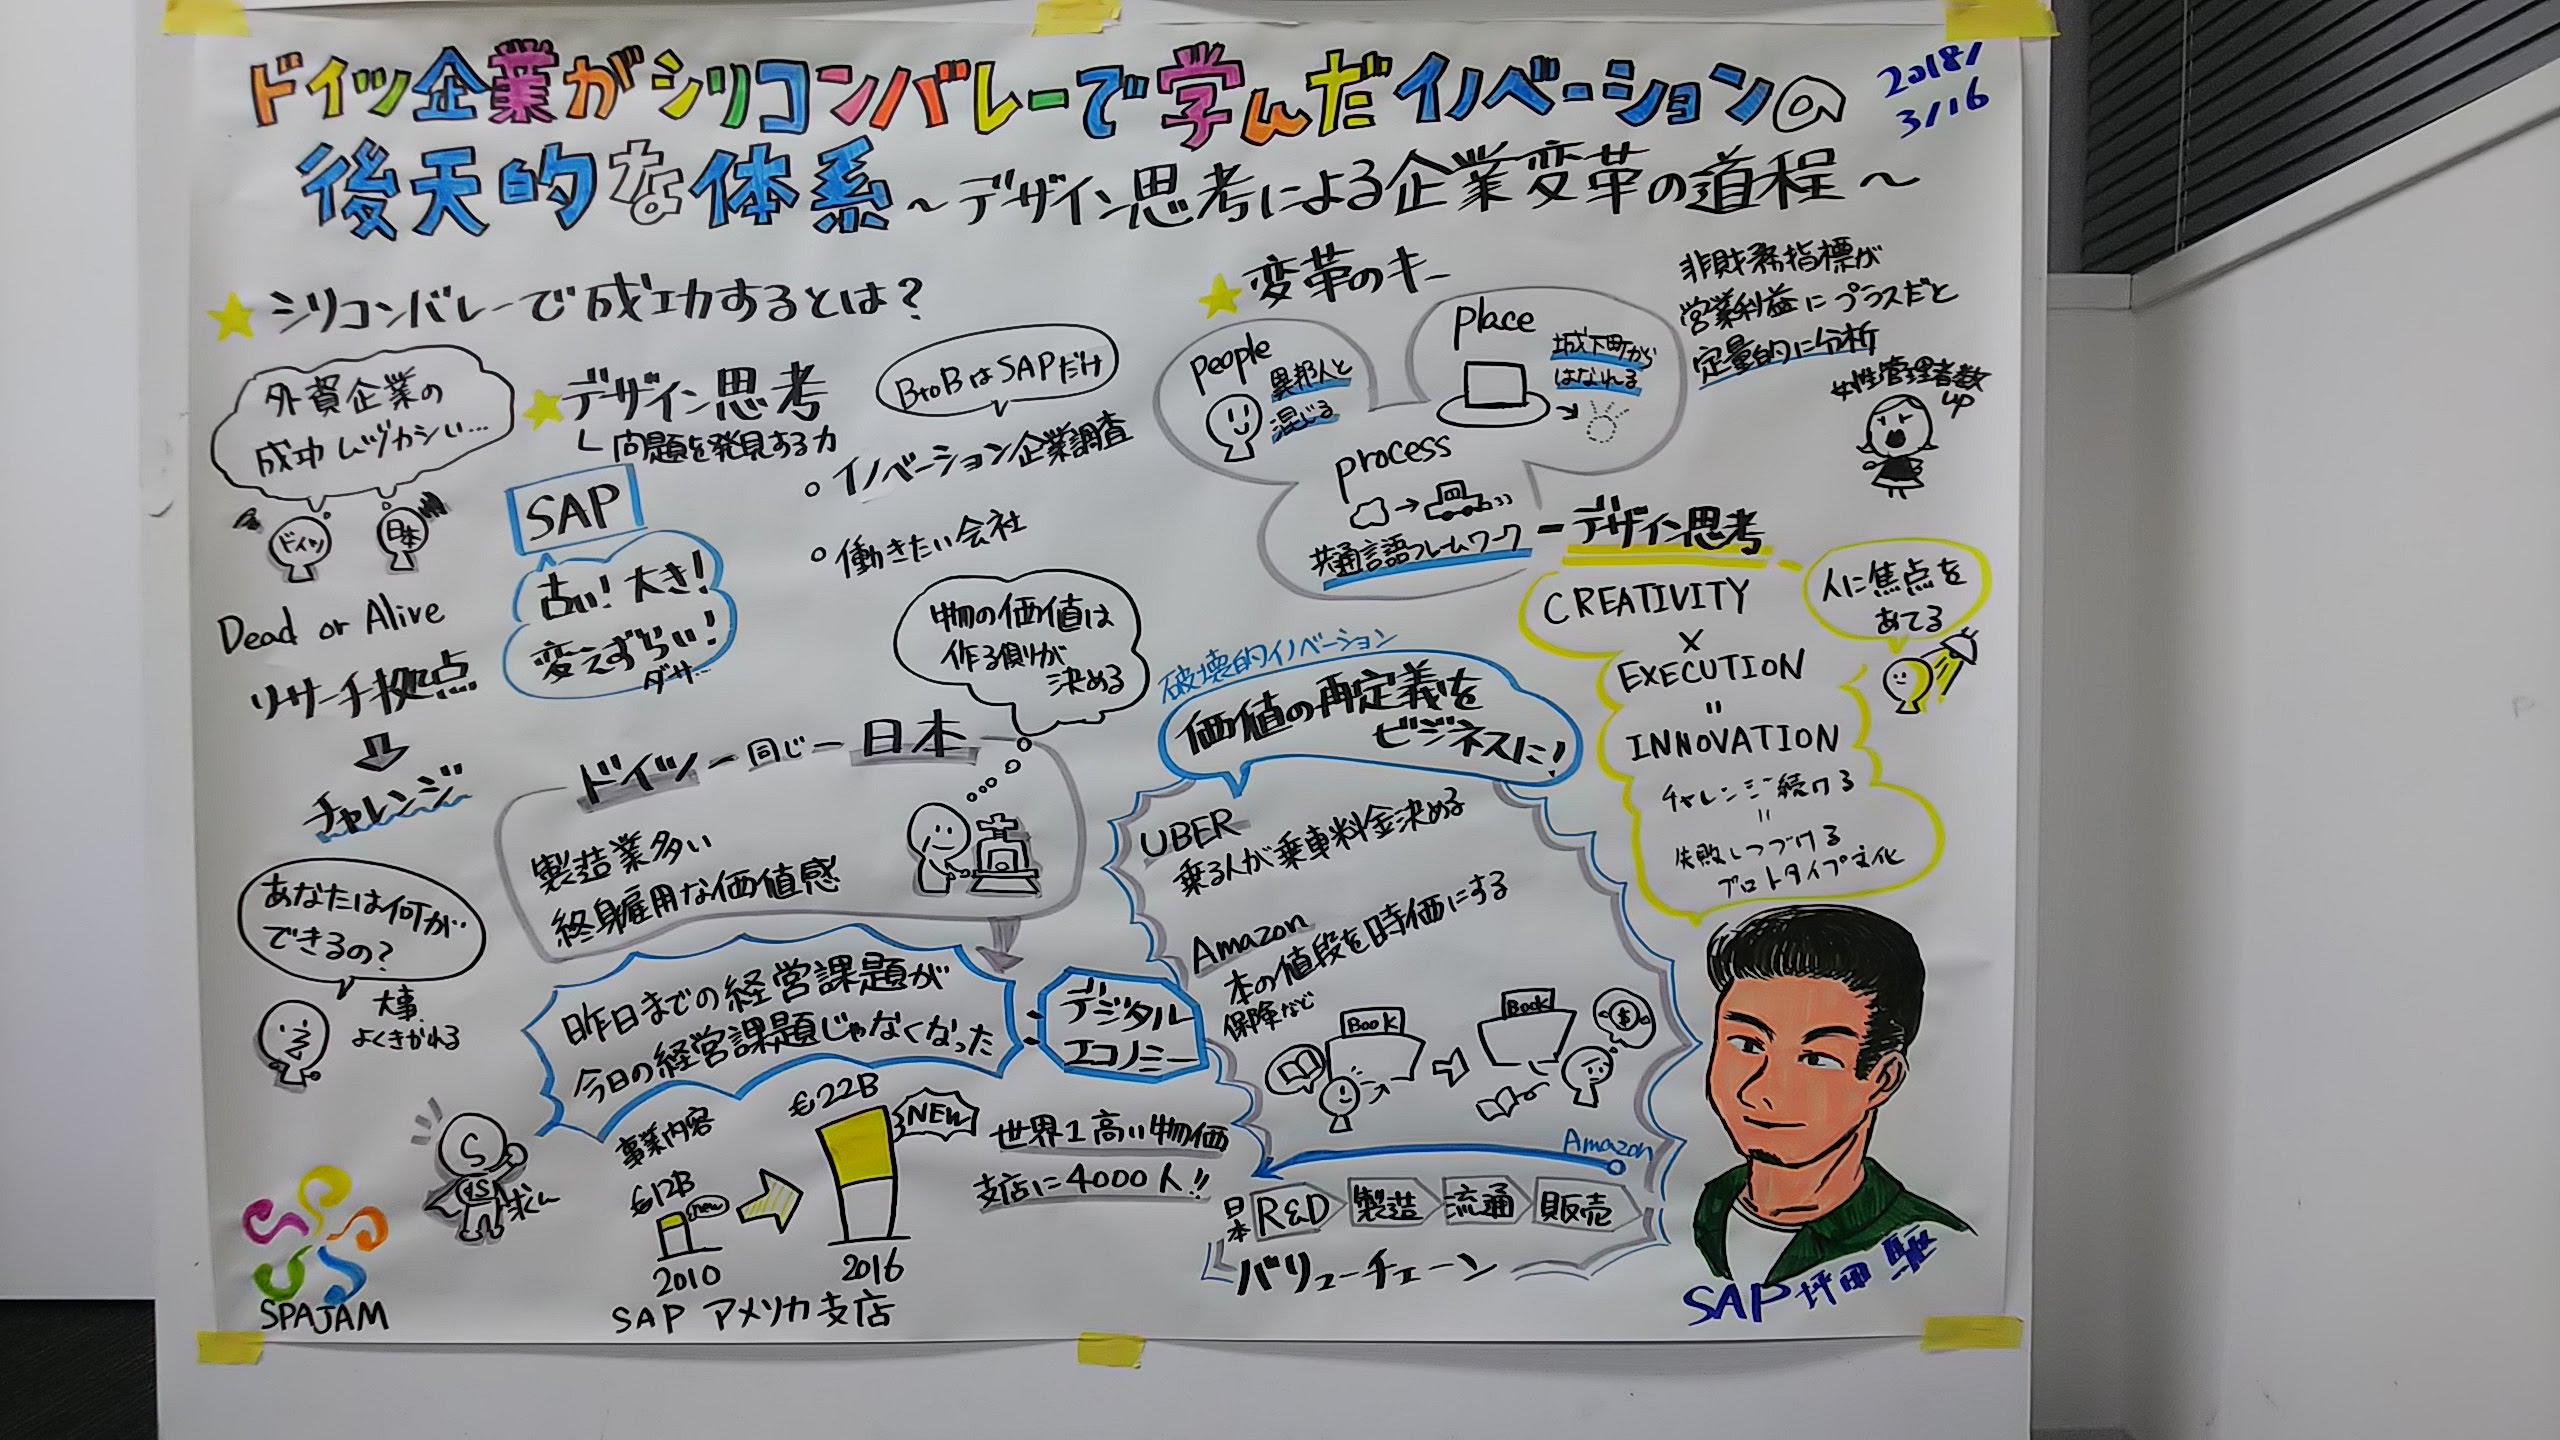 ドイツ企業がシリコンバレーで学んだイノベーションの
後天的な体系～デザイン思考による企業変革の道程～
2018/
3/16
シリコンバレーで成功するとは?
外資企業の
成功ムヅカシい…
ドイツ
日本
Dead or Alive
リサーチ拠点
チャレンジ
あなたは何が
できるの?
大事
よくきかれる
デザイン思考
問題を発見する力
SAP
古い!大き!
変えずらい!
ダサ…
BtoBはSAPだけ
イノベーション企業調査
働きたい会社
物の価値は
作る側が
決める
ドイツー同じー日本
製造業多い
終身雇用な価値感
昨日までの経営課題が
今日の経営課題じゃなくなった
デジタル
エコノミー
事業内容
€12B
new
2010
€22B
NEW
2016
SAP アメリカ支店
世界1高い物価
支店に4000人!!
S
SPAJAM
変革のキー
people
異邦人と
混じる
place
城下町から
はなれる
process
共通言語フレームワーク
ーデザイン思考
非財務指標が
営業利益にプラスだと
定量的に分析
女性管理者数
up
人に焦点を
あてる
CREATIVITY
×
EXECUTION
=
INNOVATION
チャレンジ続ける
=
失敗しつづける
プロトタイプ文化
破壊的イノベーション
価値の再定義を
ビジネスに!
UBER
乗る人が乗車料金決める
Amazon
本の値段を時価にする
保障など
Book
Book
$
Amazon
日本
R&D
製造
流通
販売
バリューチェーン
SAP 坪田 駆